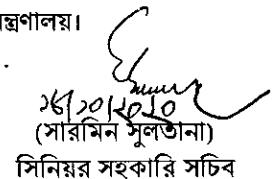 ন্ত্রণালয়।
২৮/১০/২০২০
(সারমিন সুলতানা)
সিনিয়র সহকারি সচিব